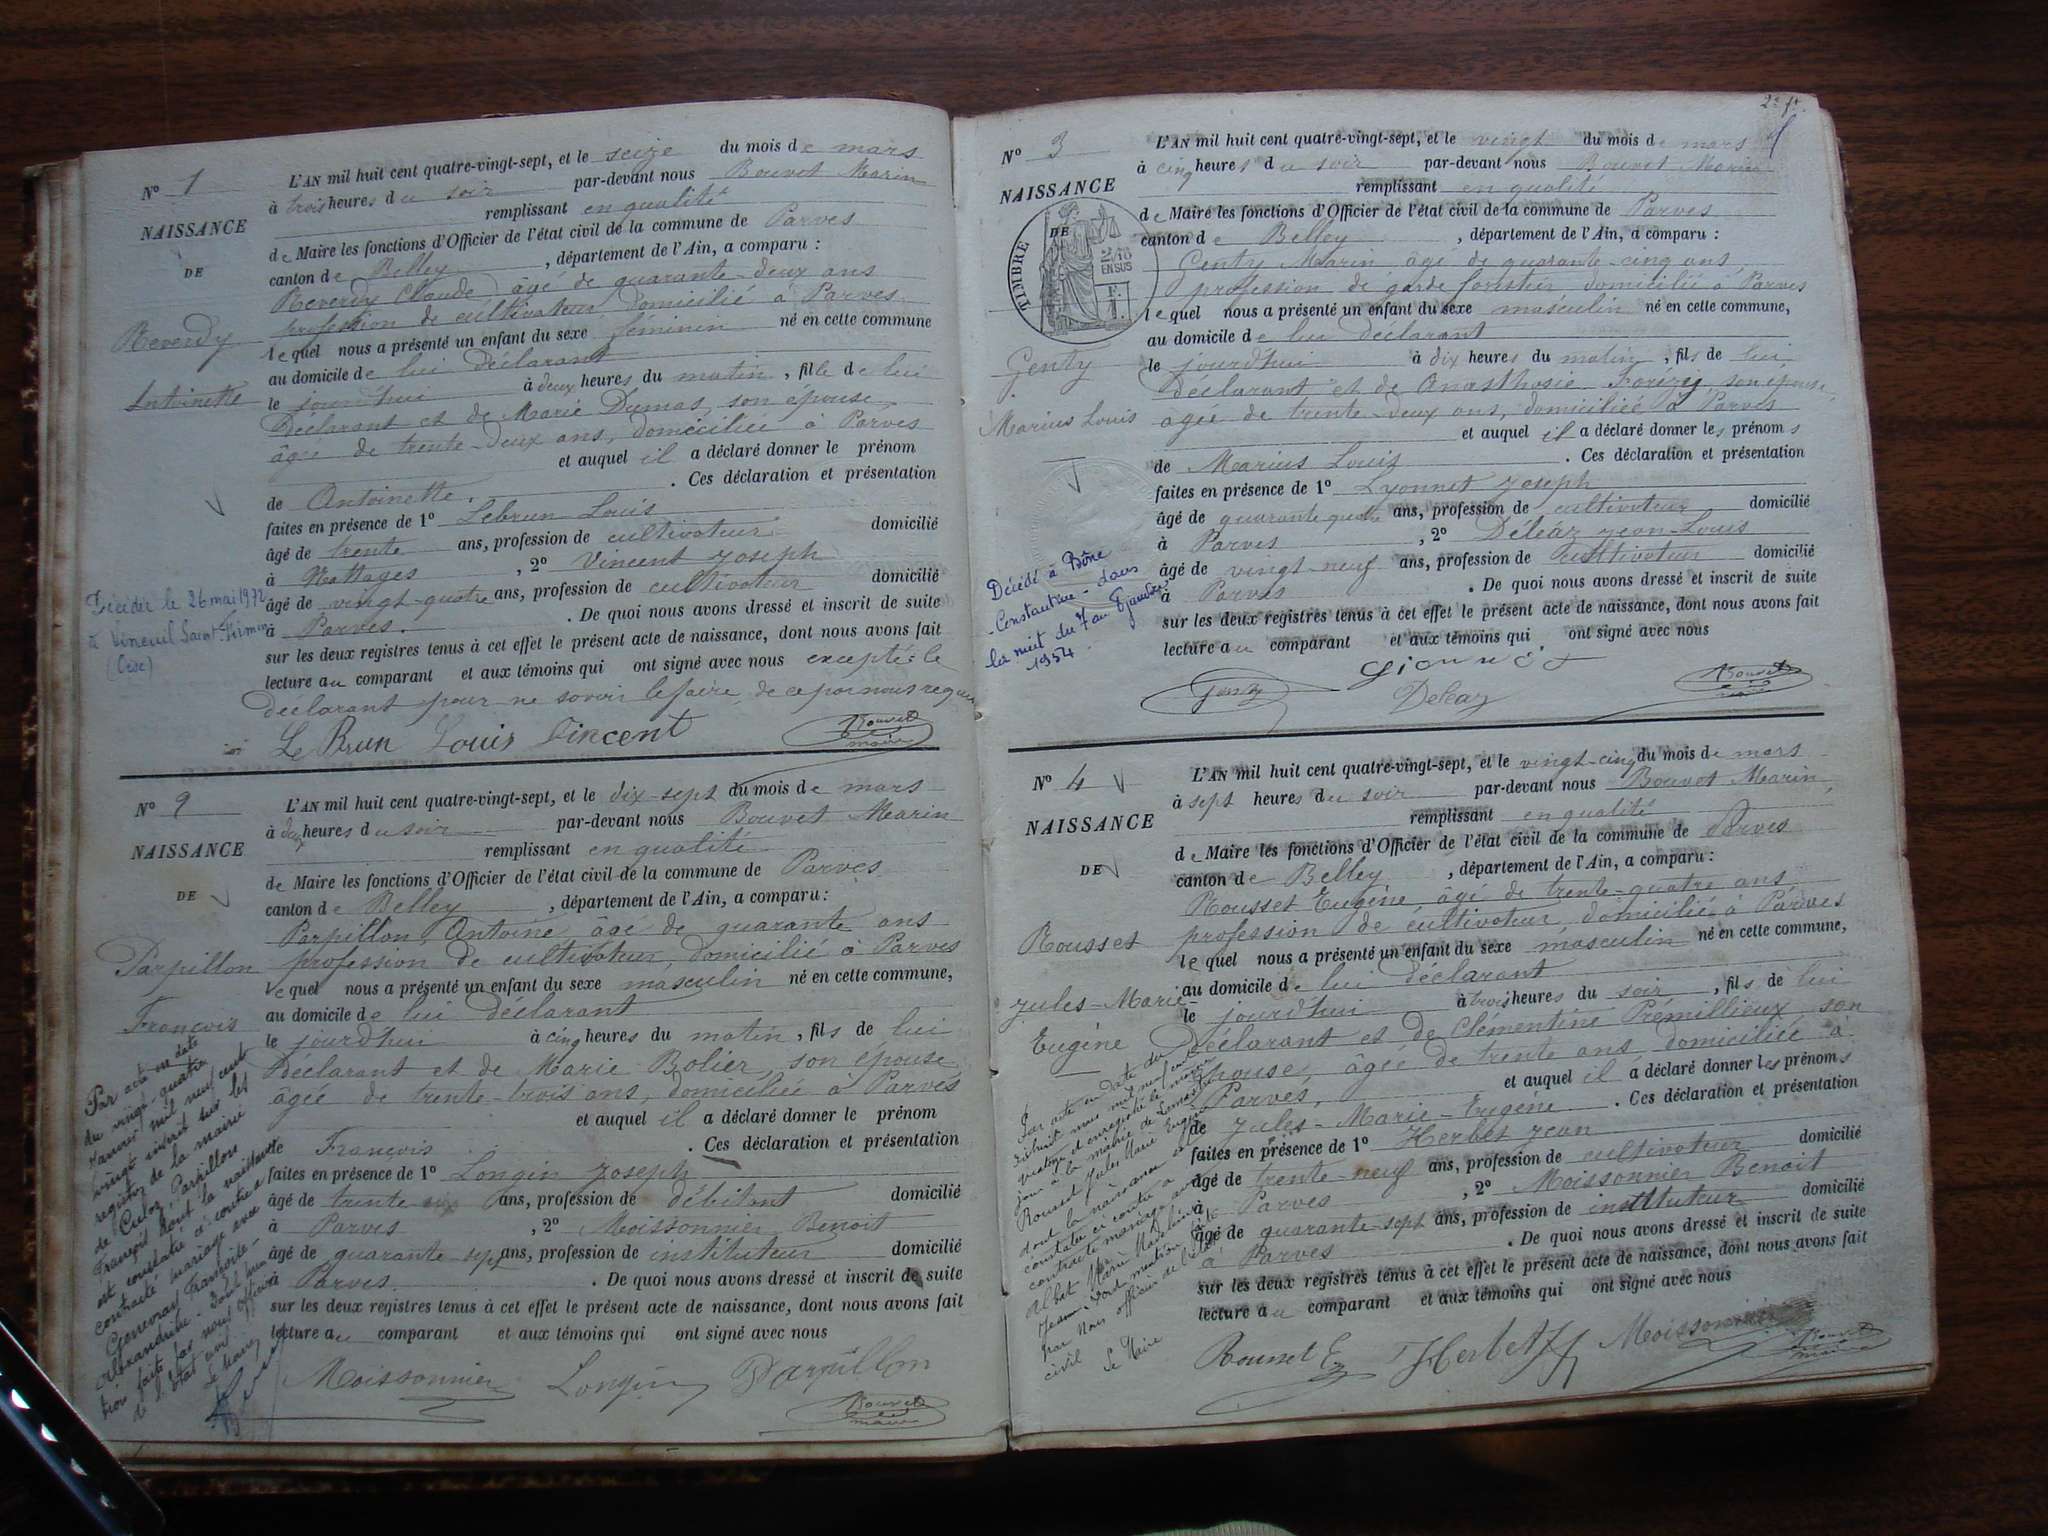 N° 1
NAISSANCE
DE
Reverdy
Antoinette
Décédée le 26 mai 1972
à Vineuil Saint-Firmin
(Oise)
L'AN mil huit cent quatre-vingt-sept, et le seize du mois de mars
à trois heures du soir par-devant nous Bouvet Marin
remplissant en qualité
de Maire les fonctions d'Officier de l'état civil de la commune de Parves
canton de Belley, département de l'Ain, a comparu :
Reverdy Claude âgé de quarante-deux ans
profession de cultivateur domicilié à Parves
lequel nous a présenté un enfant du sexe féminin né en cette commune
au domicile de lui déclarant
le jourd'hui à deux heures du matin, fille de lui
déclarant et de Marie Dumas, son épouse,
âgée de trente-deux ans, domiciliée à Parves
et auquel il a déclaré donner le prénom
de Antoinette. Ces déclaration et présentation
faites en présence de 1° Lebrun Louis
âgé de trente ans, profession de cultivateur domicilié
à Nattages, 2° Vincent Joseph
âgé de vingt-quatre ans, profession de cultivateur domicilié
à Parves. De quoi nous avons dressé et inscrit de suite
sur les deux registres tenus à cet effet le présent acte de naissance, dont nous avons fait
lecture au comparant et aux témoins qui ont signé avec nous excepté le
déclarant pour ne savoir le faire, de ce par nous requis
Le Brun Louis Vincent Bouvet
maire
N° 2
NAISSANCE
DE
Parpillon
François
Par acte en date
du vingt-quatre
Janvier mil neuf cent
vingt inscrit sur les
registres de la mairie
de Culoz, Parpillon
François dont la naissance
est constatée ci-contre a
contracté mariage avec
Genevray Françoise-
Alexandrine. Dont men
tion faite par nous officier
de l'état civil
Le Maire
L'AN mil huit cent quatre-vingt-sept, et le dix-sept du mois de mars
à deux heures du soir par-devant nous Bouvet Marin
remplissant en qualité
de Maire les fonctions d'Officier de l'état civil de la commune de Parves
canton de Belley, département de l'Ain, a comparu :
Parpillon Antoine âgé de quarante ans
profession de cultivateur, domicilié à Parves
lequel nous a présenté un enfant du sexe masculin né en cette commune,
au domicile de lui déclarant
le jourd'hui à cinq heures du matin, fils de lui
déclarant et de Marie Bolier, son épouse
âgée de trente-trois ans, domiciliée à Parves
et auquel il a déclaré donner le prénom
de François. Ces déclaration et présentation
faites en présence de 1° Longin Joseph
âgé de trente six ans, profession de débitant domicilié
à Parves, 2° Moissonnier Benoit
âgé de quarante sept ans, profession de instituteur domicilié
à Parves. De quoi nous avons dressé et inscrit de suite
sur les deux registres tenus à cet effet le présent acte de naissance, dont nous avons fait
lecture au comparant et aux témoins qui ont signé avec nous
Moissonnier Longin Parpillon
Bouvet
maire
2e ft.
N° 3
NAISSANCE
DE
TIMBRE
2/10
EN SUS
F.
Genty
Marius Louis
Décédé à Bône
-Constantine- dans
la nuit du 7 au 8 janvier
1954
L'AN mil huit cent quatre-vingt-sept, et le vingt du mois de mars
à cinq heures du soir par-devant nous Bouvet Marin
remplissant en qualité
de Maire les fonctions d'Officier de l'état civil de la commune de Parves
canton de Belley, département de l'Ain, a comparu :
Genty Marin âgé de quarante-cinq ans
profession de garde forestier domicilié à Parves
lequel nous a présenté un enfant du sexe masculin né en cette commune,
au domicile de lui déclarant
le jourd'hui à dix heures du matin, fils de lui
déclarant et de Anasthasie son épouse,
âgée de trente-deux ans, domiciliée à Parves
et auquel il a déclaré donner les prénoms
de Marius Louis. Ces déclaration et présentation
faites en présence de 1° Lyonnet Joseph
âgé de quarante quatre ans, profession de cultivateur domicilié
à Parves, 2° Déléaz Jean-Louis
âgé de vingt-neuf ans, profession de cultivateur domicilié
à Parves. De quoi nous avons dressé et inscrit de suite
sur les deux registres tenus à cet effet le présent acte de naissance, dont nous avons fait
lecture au comparant et aux témoins qui ont signé avec nous
Genty Deleaz Bouvet
maire
N° 4
NAISSANCE
DE
Rousset
Jules-Marie-
Eugène
Par acte en date du
dixhuit mars mil neuf cent
quatorze et enregistré le même
jour à la mairie de
Rousset Jules Marie Eugène
dont la naissance est
constatée ci contre a
contracté mariage avec
Albet Marie Madeleine
Jeanne. Dont mention faite
par nous officier de l'état
civil Le Maire
L'AN mil huit cent quatre-vingt-sept, et le vingt-cinq du mois de mars
à sept heures du soir par-devant nous Bouvet Marin,
remplissant en qualité
de Maire les fonctions d'Officier de l'état civil de la commune de Parves
canton de Belley, département de l'Ain, a comparu :
Rousset Eugène, âgé de trente-quatre ans
profession de cultivateur, domicilié à Parves
lequel nous a présenté un enfant du sexe masculin né en cette commune,
au domicile de lui déclarant
le jourd'hui à trois heures du soir, fils de lui
déclarant et de Clémentine Prémillieux, son
épouse, âgée de trente ans, domiciliée à
Parves, et auquel il a déclaré donner les prénoms
de Jules-Marie-Eugène. Ces déclaration et présentation
faites en présence de 1° Herbet Jean
âgé de trente-neuf ans, profession de cultivateur domicilié
à Parves, 2° Moissonnier Benoit
âgé de quarante-sept ans, profession de instituteur domicilié
à Parves. De quoi nous avons dressé et inscrit de suite
sur les deux registres tenus à cet effet le présent acte de naissance, dont nous avons fait
lecture au comparant et aux témoins qui ont signé avec nous
Rousset E Herbet Moissonnier Bouvet
maire